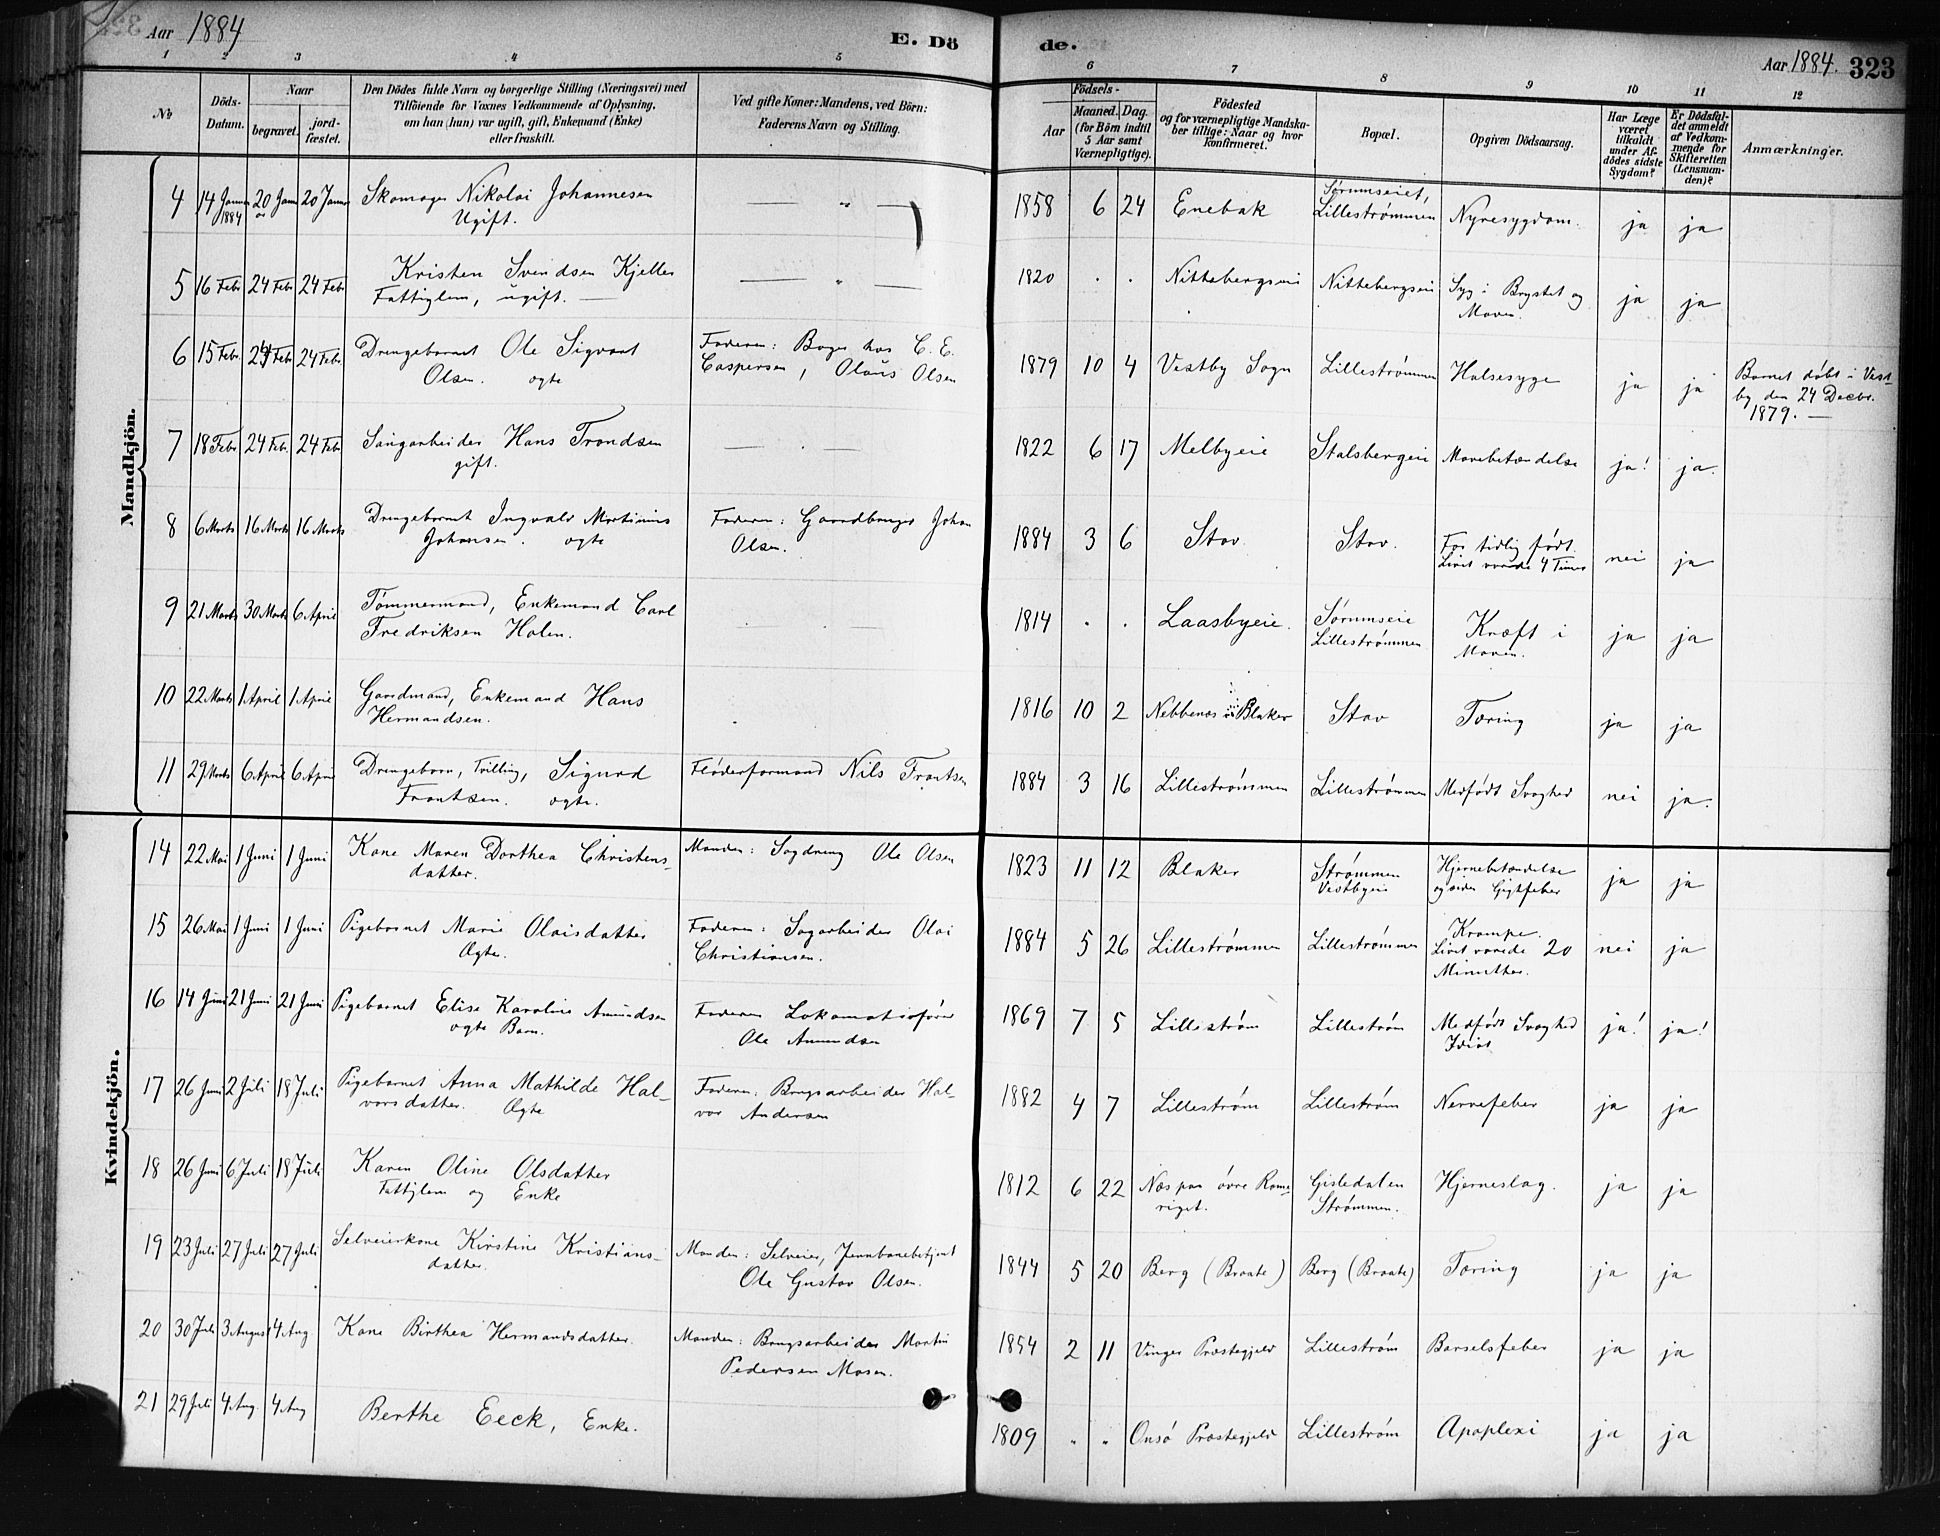 Aar 1884
E. Dö
de.
Aar 1884. 323
1 2 3 4 5 6 7 8 9 10 11 12
No
Döds-Datum.
Naar
begravet.
jord-fæstet.
Den Dödes fulde Navn og borgerlige Stilling (Næringsvei) med
Tilföiende for Voxnes Vedkommende af Oplysning,
om han (hun) var ugift, gift, Enkemand (Enke)
eller fraskilt.
Ved gifte Koner: Mandens, ved Börn:
Faderens Navn og Stilling.
Födsels-
Aar
Maaned. Dag.
(for Börn indtil
5 Aar samt
Værnepligtige).
Födested
og for værnepligtige Mandska-
ber tillige: Naar og hvor
konfirmeret.
Bopæl.
Opgiven Dödsaarsag.
Har Læge
været
tilkaldt
under Af-
dödes sidste
Sygdom?
Er Dödsfal-
det anmeldt
af Vedkom-
mende for
Skifteretten
(Lensman-
den)?
Anmærkninger.
Mandkjön.
4 14 Januar 1884 20 Janu 20 Janu Skomager Nikolai Johannesen
Ugift.
1858 6 24 Enebak Sørumseiet,
Lillestrømmen Nyresygdom. ja ja
5 16 Febr 24 Febr 24 Febr Kristen Svendsen Kjeller
Fattiglem, ugift.
1820 Nittebergseie Nittebergseie Syg i Brystet og
Maven. ja ja
6 15 Febr. 24 Febr 24 Febr. Drengebarnet Ole Sigvart
Olsen. ægte
Faderen: Bager hos C. E.
Caspersen, Olaus Olsen
1879 10 4 Vestby Sogn Lillestrømmen Halsesyge ja ja Barnet døbt i Vest-
by den 24 Decbr.
1879.
7 18 Febr 24 Febr. 24 Febr Saugarbeider Hans Trondsen
gift.
1822 6 17 Melbyeie Stalsbergeie Mavebetændelse ja! ja.
8 6 Marts 16 Marts 16 Marts Drengebarnet Ingvald Martinius
Johansen. ægte
Faderen: Gaardbruger Johan
Olsen.
1884 3 6 Stav. Stav. For tidlig født.
Livet varede 4 Timer nei ja
9 21 Marts 30 Marts 6 April Tømmermand, Enkemand Carl
Fredriksen Holen.
1814 Laasbyeie. Sørumseie
Lillestrømmen Kræft i
Maven. ja ja
10 22 Marts 1 April 1 April Gaardmand, Enkemand Hans
Hermandsen.
1816 10 2 Nebbenæs i Blaker Stav Tæring ja ja
11 29 Marts 6 April 6 April Drengebarn, Tvilling, Sigurd
Frantsen. ægte.
Fløderformand Nils Frantsen
1884 3 16 Lillestrømmen Lillestrømmen Medfødt Svaghed nei ja.
Kvindekjön.
14 22 Mai 1 Juni 1 Juni Kone Maren Dorthea Christens-
datter.
Manden: Sagdreng Ole Olsen
1823 11 12 Blaker Strømmen
Vestbyeie Hjernebetændelse
og siden Gigtfeber ja ja
15 26 Mai 1 Juni 1 Juni Pigebarnet Marie Olaisdatter
Ægte.
Faderen: Sagarbeider Olai
Christiansen.
1884 5 26 Lillestrømmen Lillestrømmen Krampe.
Livet varede 20
Minutter. nei ja
16 14 Juni 21 Juni 21 Juni Pigebarnet Elise Karoline Amundsen
ægte Barn.
Faderen Lokomotivfører
Ole Amundsen
1869 7 5 Lillestrøm Lillestrøm Medfødt Svaghed
Idiot ja! ja!
17 26 Juni 2 Juli 18 Juli Pigebarnet Anna Mathilde Hal-
vorsdatter. Ægte
Faderen: Brugsarbeider Hal-
vor Andersen
1882 4 7 Lillestrøm Lillestrøm Nervefeber ja ja
18 26 Juni 6 Juli 18 Juli Karen Oline Olsdatter
Fattiglem og Enke
1812 6 22 Næs paa øvre Rome-
riget. Gisledalen
Strømmen. Hjerneslag. ja ja
19 23 Juli 27 Juli 27 Juli Selveierkone Kirstine Kristians-
datter.
Manden: Selveier, Jernbanebetjent
Ole Gustav Olsen.
1844 5 20 Berg (Braate) Berg (Braate) Tæring ja ja
20 30 Juli 3 August 4 Aug Kone Birthea Hermandsdatter.
Manden: Brugsarbeider Martin
Pedersen Mosen.
1854 2 11 Vinger Præstegjeld Lillestrøm Barselsfeber ja ja
21 29 Juli 4 Aug. 4 Aug Berthe Eeck, Enke.
1809 " " Onsø Præstegjeld Lillestrøm Apoplexi ja ja